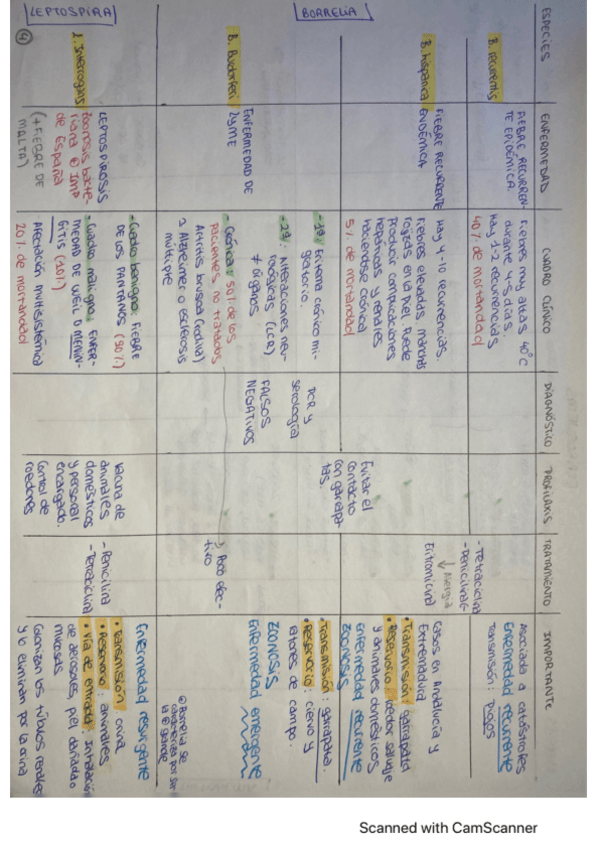 ESPECIES
ENFERMEDAD
CUADRO CLÍNICO
DIAGNÓSTICO
PROFILAXIS
TRATAMIENTO
IMPORTANTE
BORRELIA
B. recurrentis
FIEBRE RECURREN-
TE EPIDÉMICA.
Fiebres muy altas 40°C
durante 4-5 días.
Hay 1-2 recurrencias
40% de mortandad
- Tetraciclina
- Penicilina
↓ Alergia
Eritromicina
Asociada a catástrofes
Enfermedad recurrente
Transmisión: piojos
B. hispanica
FIEBRE RECURRENTE
ENDÉMICA.
Hay 4-10 recurrencias.
Fiebres elevadas, manchas
rojizas en la piel. Puede
producir complicaciones
hepáticas y renales
haciéndose crónica
5% de mortandad
Evitar el
contacto
con garrapa-
tas.
Casos en Andalucía y
Extremadura
• Transmisión: garrapata
• Reservorio: roedor salvaje
y animales domésticos
Enfermedad recurrente
ZOONOSIS
B. Burdorferi
ENFERMEDAD DE
LYME
- 1ª: Eritema crónico mi-
gratorio.
- 2ª: Alteraciones neu-
rológicas (LCR)
≠ órganos
- Crónica: 50% de los
pacientes no tratados
Artritis, bursitis (rodilla)
múltiple
PCR y
serología
FALSOS
NEGATIVOS
Poco efec-
tivo
• Transmisión: garrapata.
• Reservorio: ciervo y
ratones de campo.
ZOONOSIS
Enfermedad emergente
LEPTOSPIRA
L. Interrogans
LEPTOSPIROSIS
Zoonosis bacte-
riana + imp
de España
(+ FIEBRE DE
MALTA)
- Cuadro benigno: FIEBRE
DE LOS PANTANOS (90%)
- Cuadro maligno: ENFER-
MEDAD DE WEIL O MENIN-
GITIS (10%)
Afectación multisistémica
20% de mortandad
Vacuna de
animales
domésticos
y personal
encargado.
Control de
roedores
- Penicilina
- Tetraciclina
Enfermedad resurgente
• Transmisión: orina
• Reservorio: animales
• Vía de entrada: Inhalación
de aerosoles, piel dañada o
mucosas
Colonizan los túbulos renales
y lo eliminan por la orina
4
Scanned with CamScanner